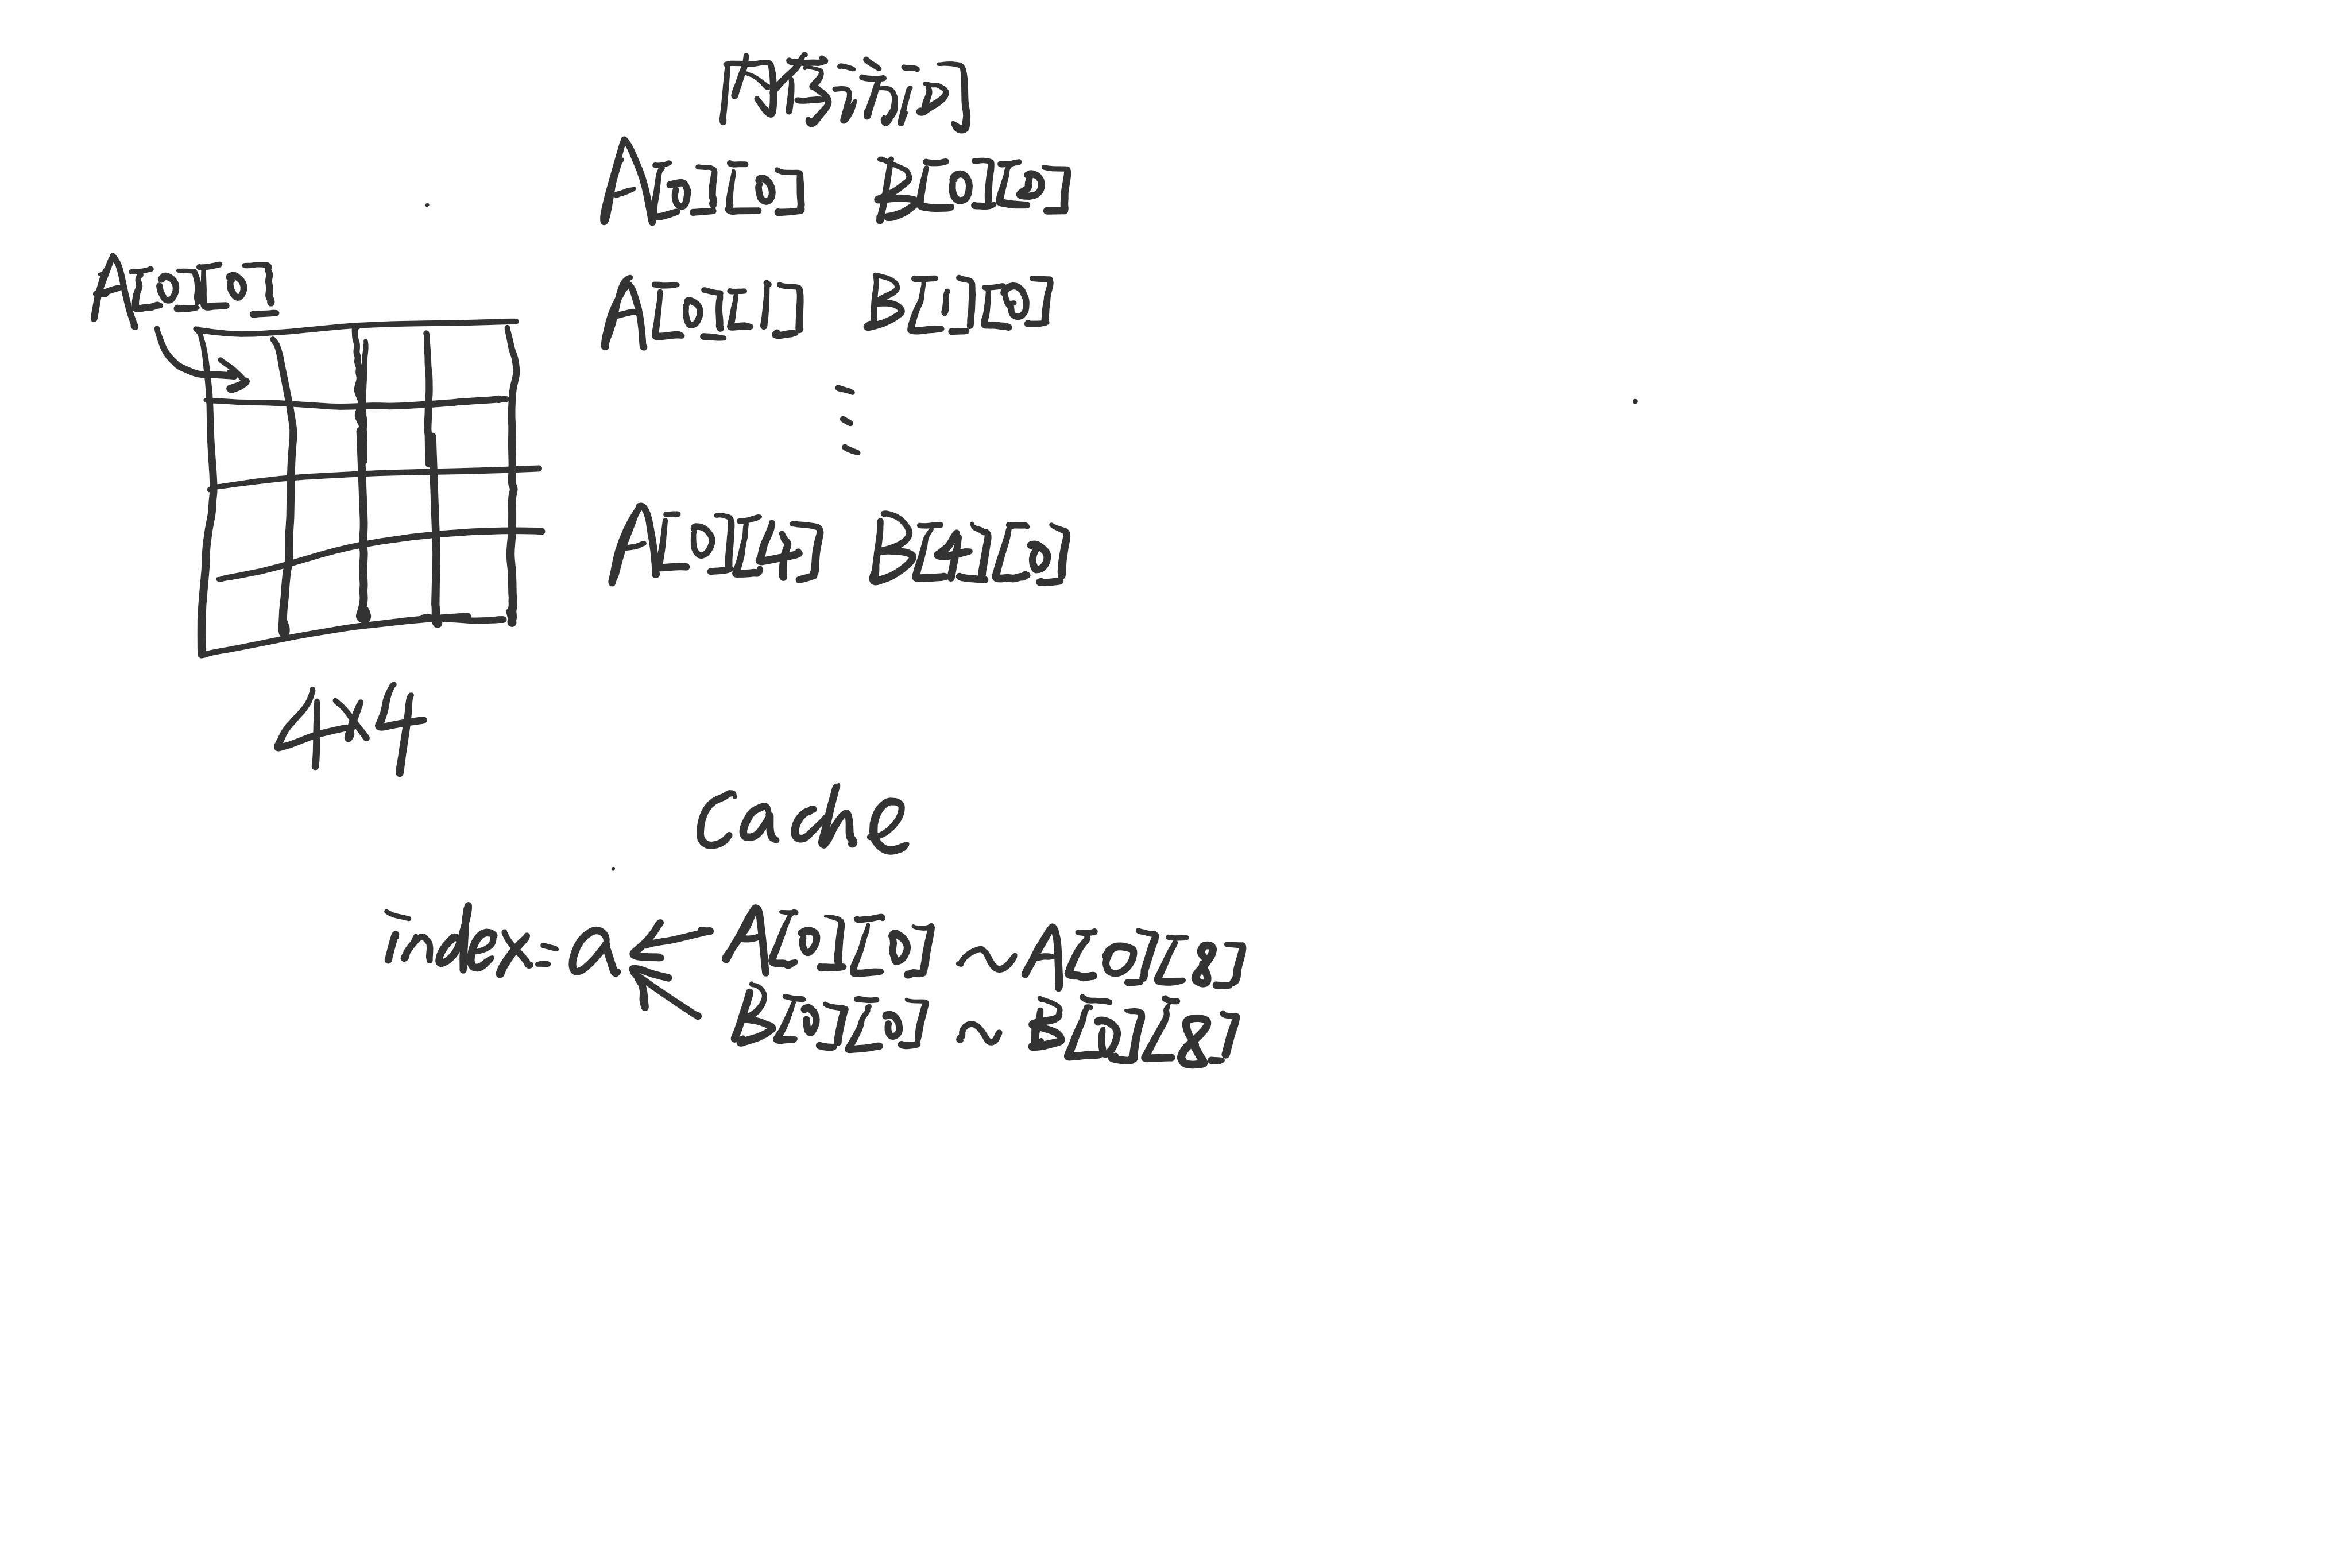 内存访问
A[0][0] B[0][0]
A[0][0]
A[0][1] B[1][0]
A[0][4] B[4][0]
4×4
Cache
index=a ← A[0][0] ~ A[0][8]
B[0][0] ~ B[0][8]